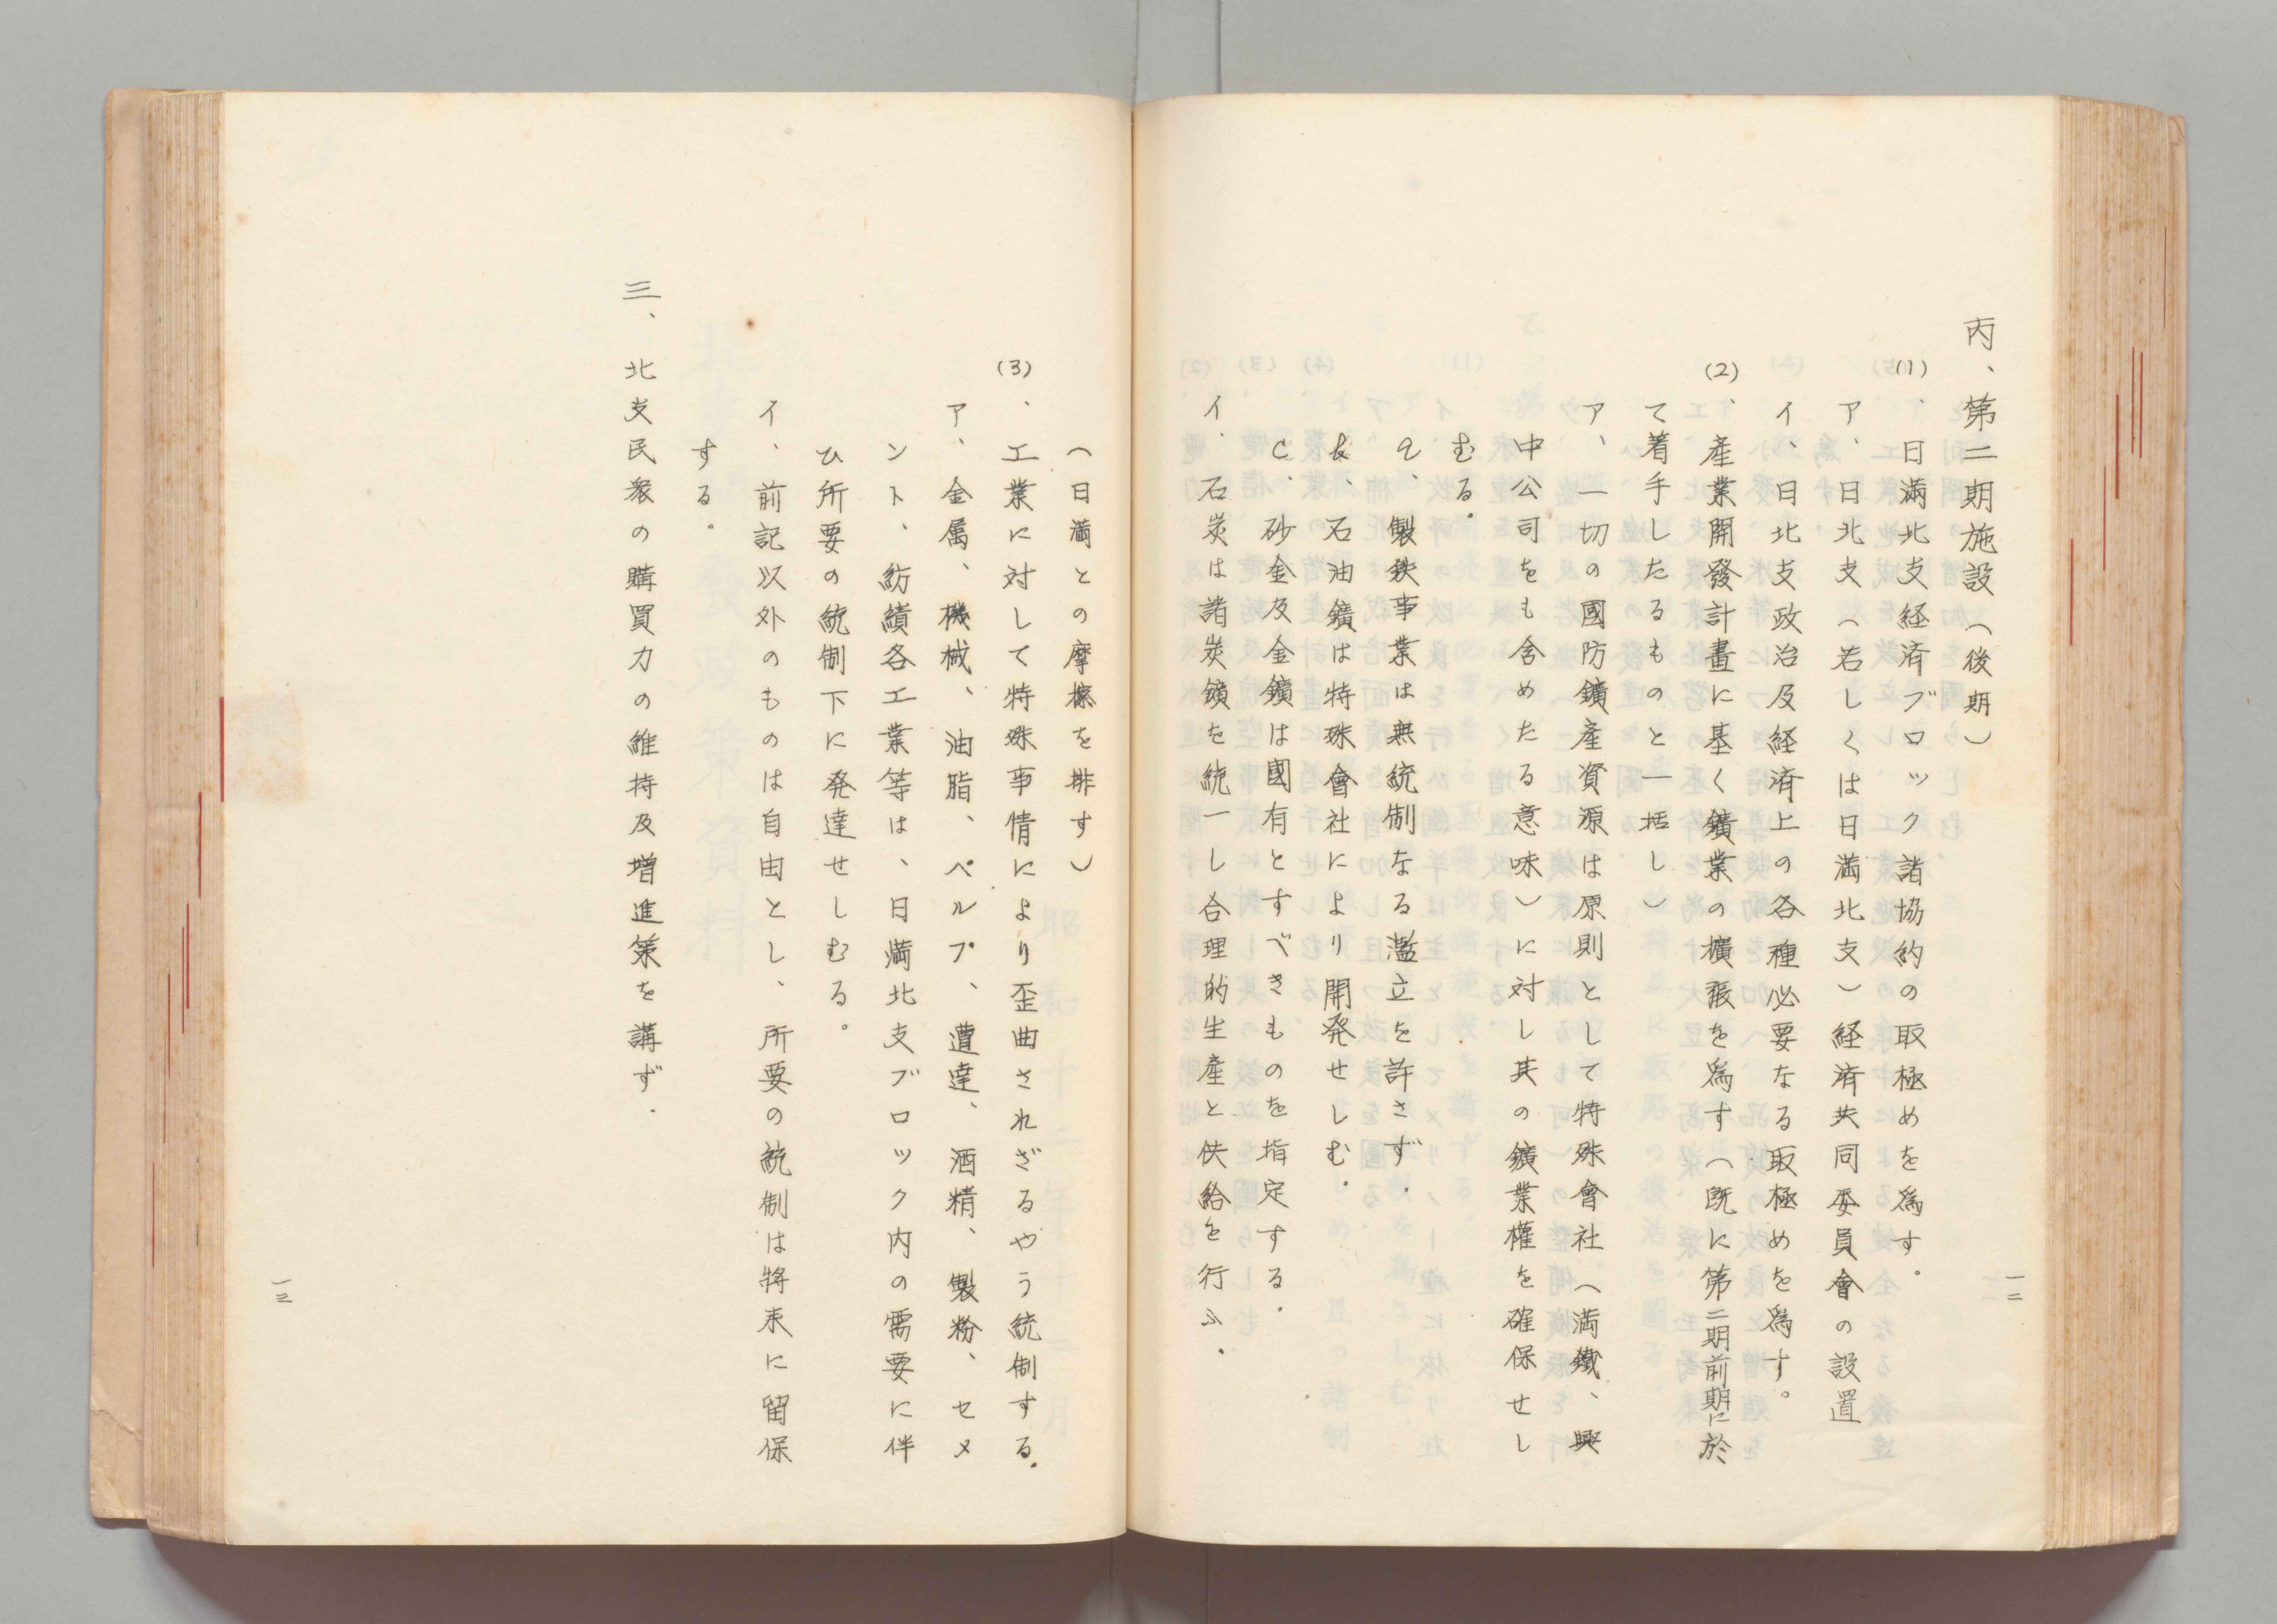 丙、第二期施設（後期）
(1)、日滿北支経済ブロック諸協約の取極めを為す。
ア、日北支（若しくは日満北支）経済共同委員會の設置
イ、日北支政治及経済上の各種必要なる取極めを爲す。
(2)、産業開發計畫に基く鑛業の擴張を爲す（既に第二期前期に於
て着手したるものと一括し）
ア、一切の國防鑛産資源は原則として特殊會社（満鐵、興
中公司をも含めたる意味）に対し其の鑛業權を確保せし
むる。
a、製鉄事業は無統制なる濫立を許さず.
b、石油鑛は特殊會社により開発せしむ.
c、砂金及金鑛は國有とすべきものを指定する.
イ、石炭は諸炭鑛を統一し合理的生産と供給を行ふ.
一二
（日満との摩擦を排す）
(3)、工業に対して特殊事情により歪曲されざるやう統制する.
ア、金属、機械、油脂、パルプ、遭達、酒精、製粉、セメ
ント、紡績各工業等は、日満北支ブロック内の需要に伴
ひ所要の統制下に発達せしむる。
イ、前記以外のものは自由とし、所要の統制は将来に留保
する。
三、北支民衆の購買力の維持及増進策を講ず.
一三